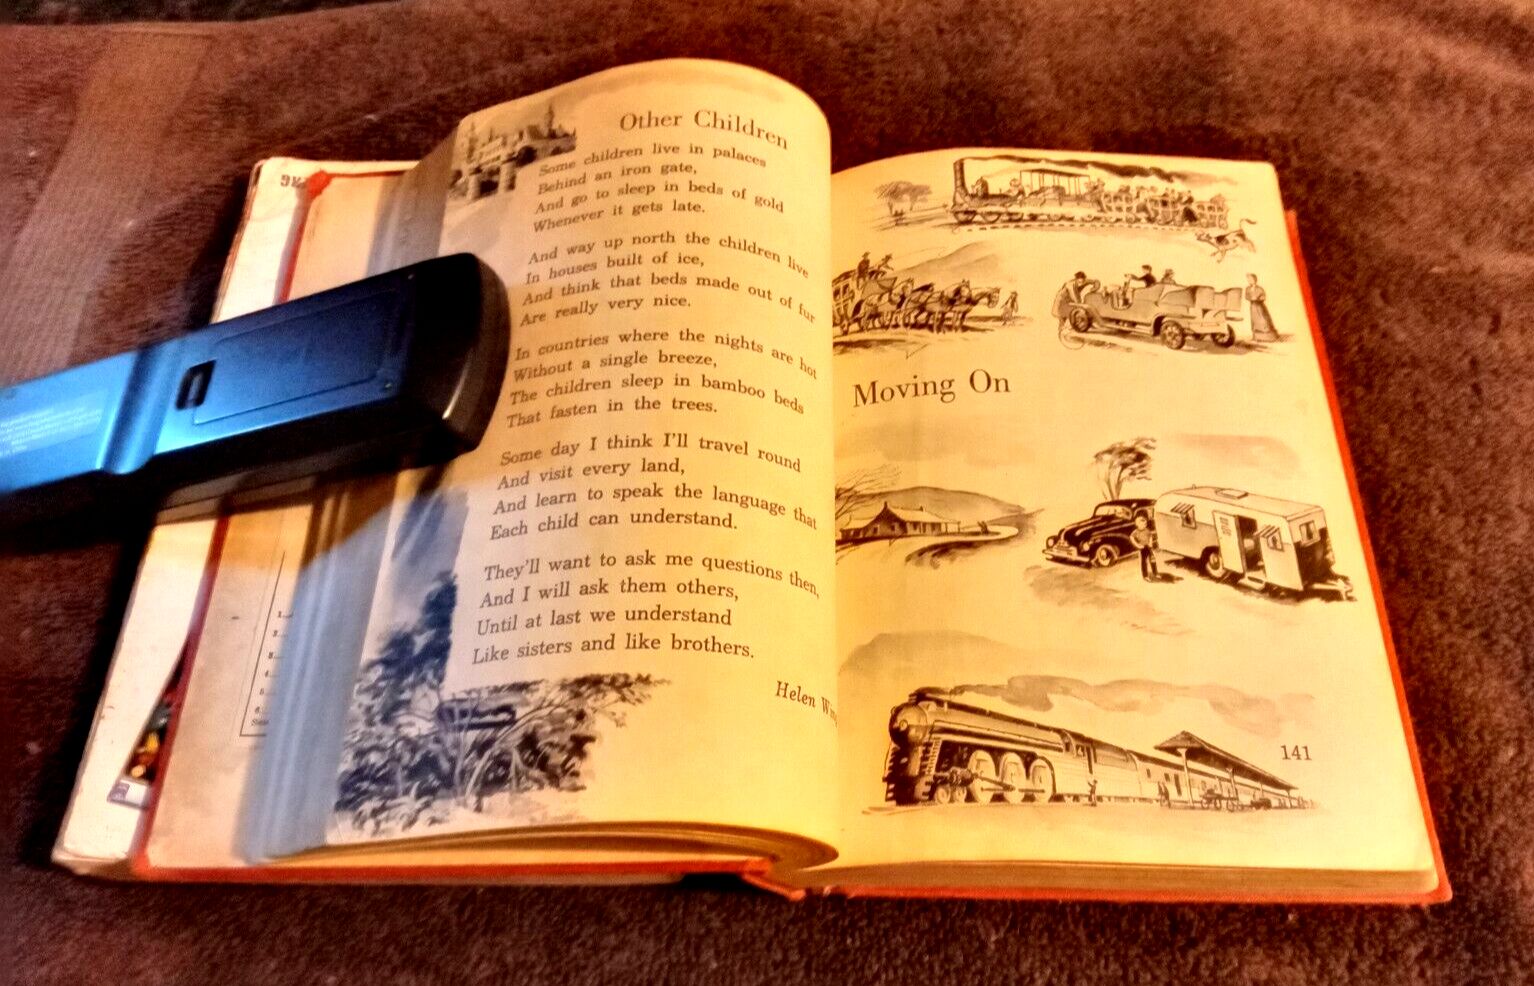 Other Children
Some children live in palaces
Behind an iron gate,
And go to sleep in beds of gold
Whenever it gets late.
And way up north the children live
In houses built of ice,
And think that beds made out of fur
Are really very nice.
In countries where the nights are hot
Without a single breeze,
The children sleep in bamboo beds
That fasten in the trees.
Some day I think I'll travel round
And visit every land,
And learn to speak the language that
Each child can understand.
They'll want to ask me questions then,
And I will ask them others,
Until at last we understand
Like sisters and like brothers.
Helen
Moving On
141